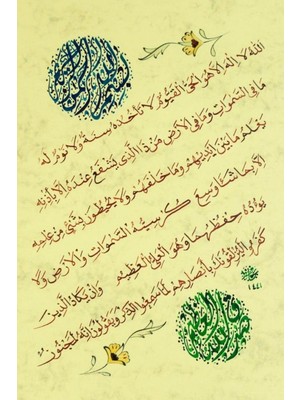 بسم الله الرحمن الرحيم
الله لا اله الا هو الحي القيوم لا تأخذه سنة ولا نوم له
ما في السموات وما في الارض من ذا الذي يشفع عنده الا باذنه
يعلم ما بين ايديهم وما خلفهم ولا يحيطون بشئ من علمه
الا بما شاء وسع كرسيه السموات والارض ولا
يؤده حفظهما وهو العلي العظيم وان يكاد الذين
كفروا ليزلقونك بأبصارهم لما سمعوا الذكر ويقولون انه لمجنون
١٤٤١